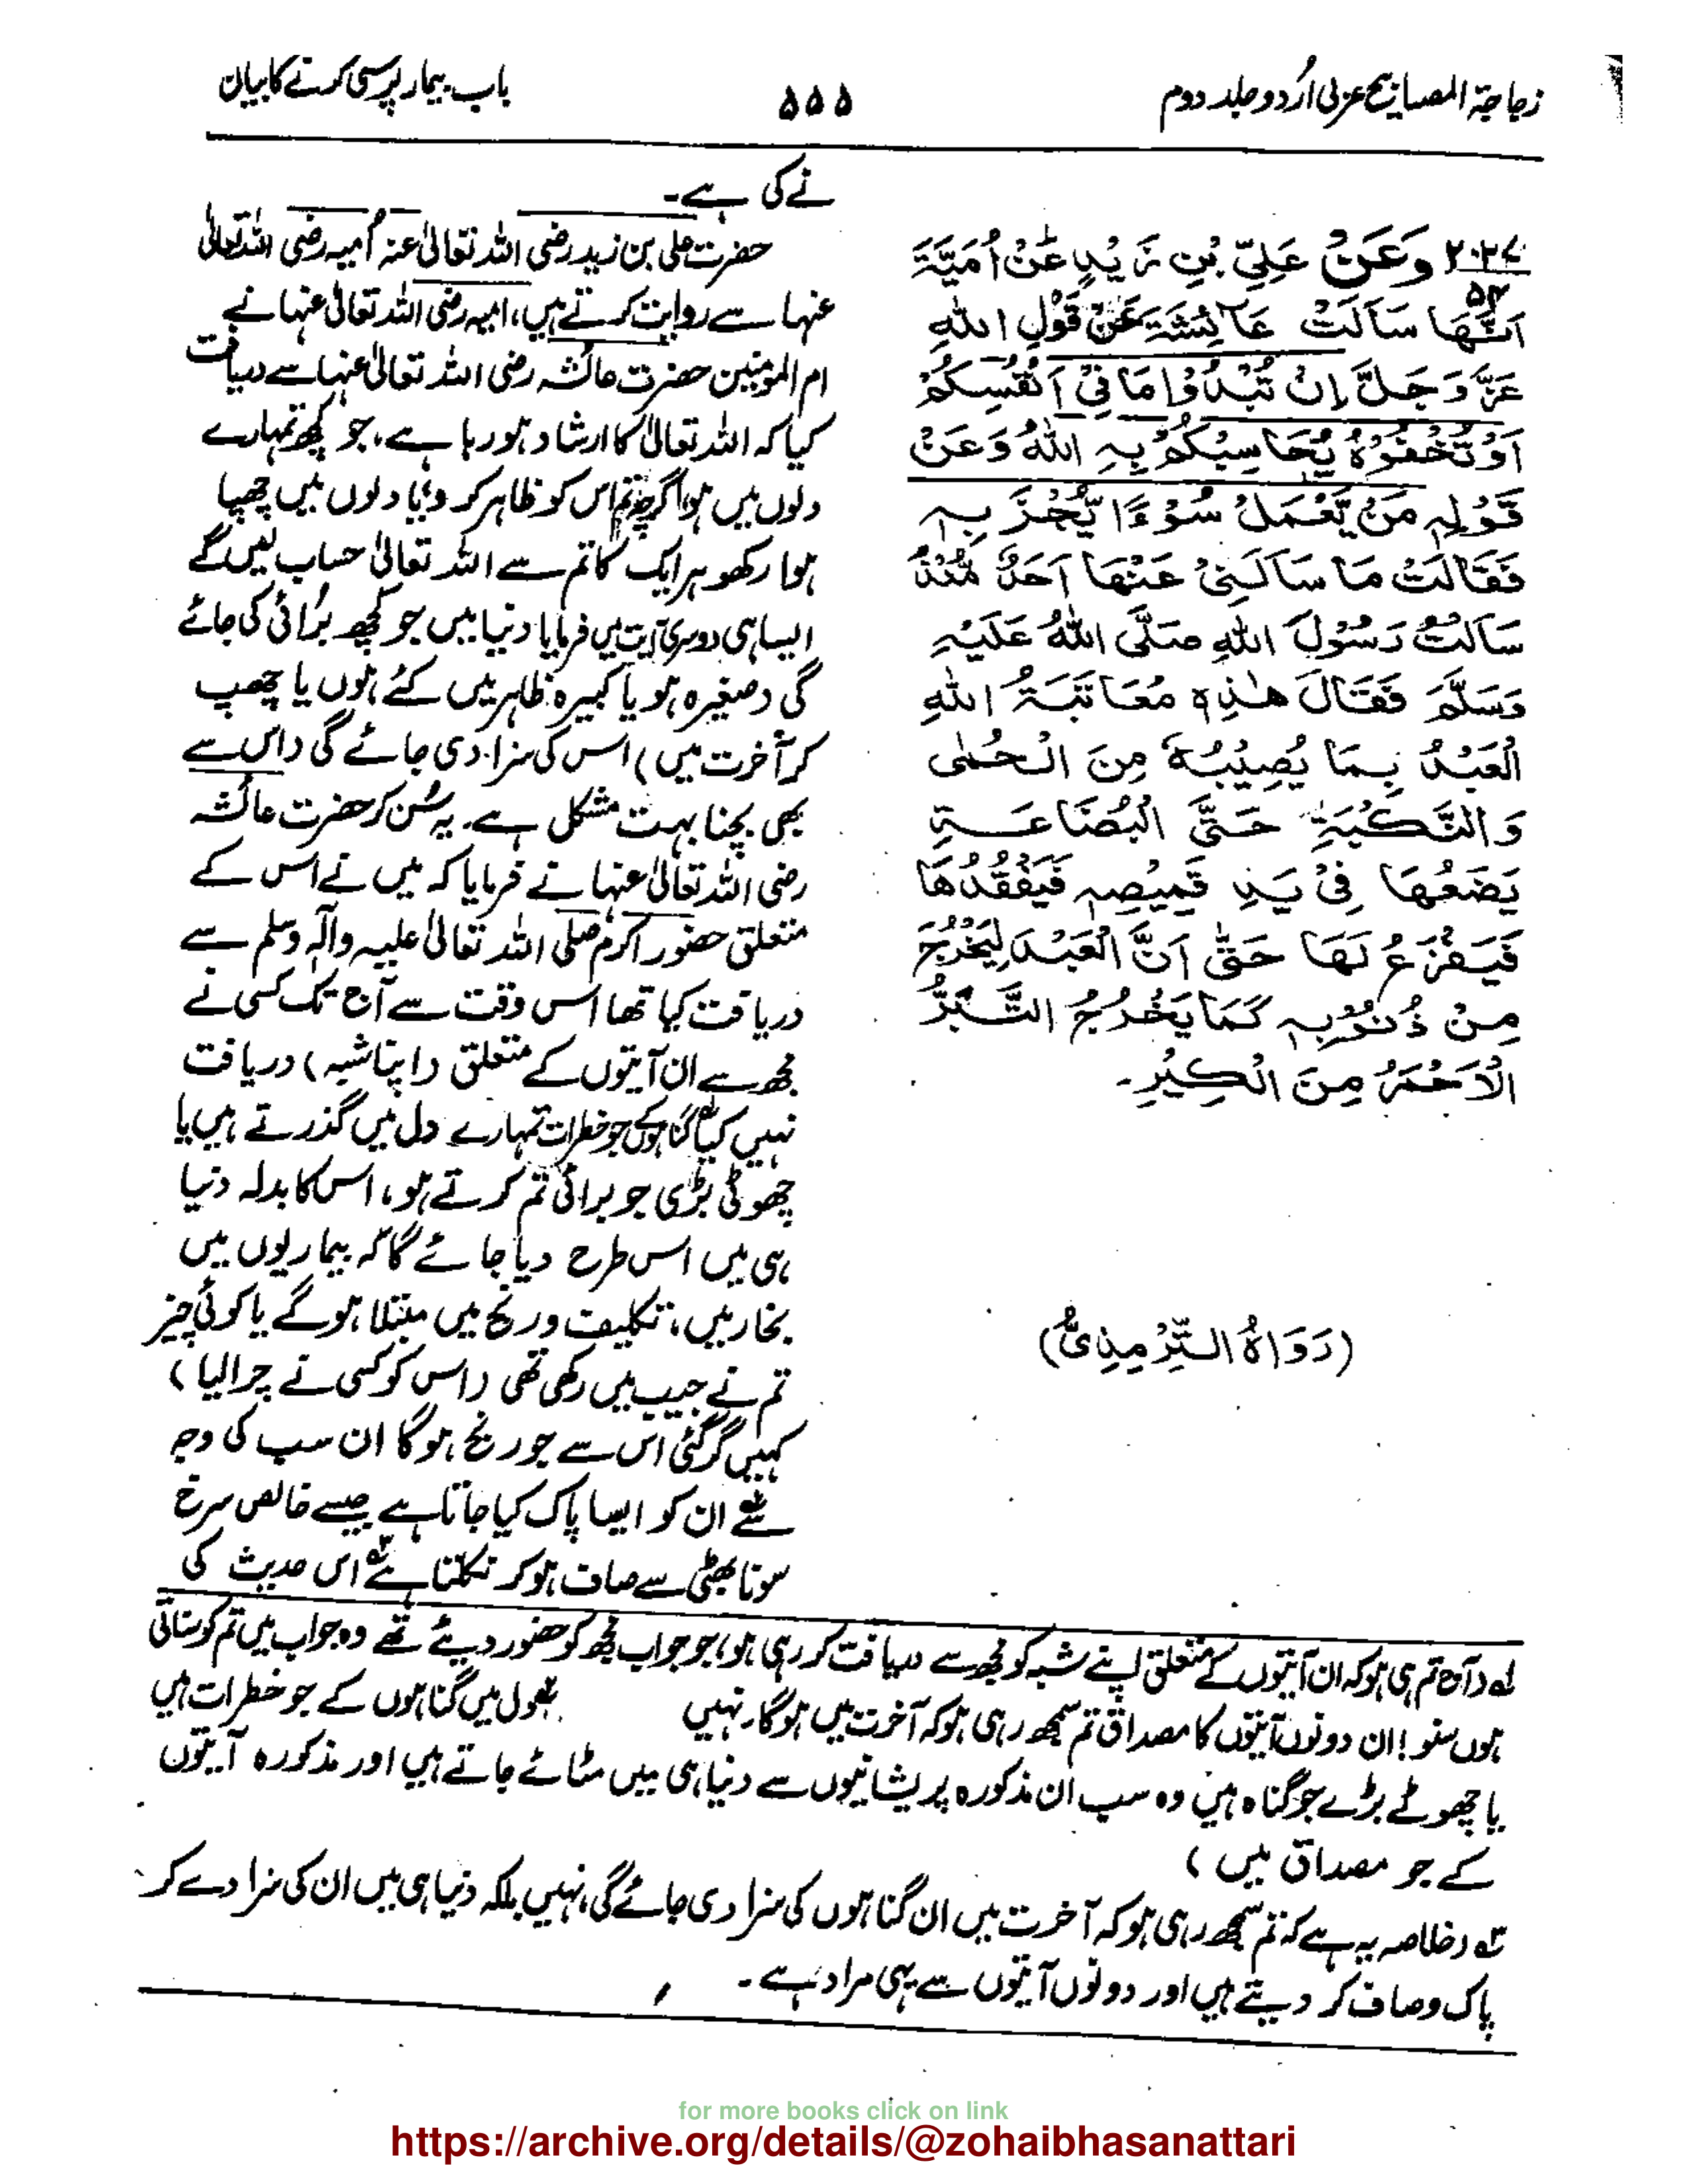 زجاجۃ المصابیح عربی اُردو جلد دوم
۵۵۵
باب بیمار پرسی کرنے کا بیان
۲۰۳۷ وَعَنْ عَلِيِّ بْنِ زَيْدٍ عَنْ اُمَيَّةَ
۵۳
اَنَّهَا سَاَلَتْ عَائِشَةَ عَنْ قَوْلِ اللهِ
عَزَّ وَجَلَّ اِنْ تُبْدُوْا مَا فِيْ اَنْفُسِكُمْ
اَوْ تُخْفُوْهُ يُحَاسِبْكُمْ بِهِ اللهُ وَعَنْ
قَوْلِهٖ مَنْ يَّعْمَلْ سُوْءًا يُّجْزَ بِهٖ
فَقَالَتْ مَا سَاَلَنِيْ عَنْهَا اَحَدٌ مُّنْذُ
سَاَلْتُ رَسُوْلَ اللهِ صَلَّى اللهُ عَلَيْهِ
وَسَلَّمَ فَقَالَ هٰذِهٖ مُعَاتَبَةُ اللهِ
الْعَبْدَ بِمَا يُصِيْبُهٗ مِنَ الْحُمّٰى
وَالنَّكْبَةِ حَتَّى الْبُضَاعَةِ
يَضَعُهَا فِيْ يَدِ قَمِيْصِهٖ فَيَفْقُدُهَا
فَيَفْزَعُ لَهَا حَتّٰى اَنَّ الْعَبْدَ لَيَخْرُجُ
مِنْ ذُنُوْبِهٖ كَمَا يَخْرُجُ التِّبْرُ
الْاَحْمَرُ مِنَ الْكِيْرِ۔
(رَوَاهُ التِّرْمِذِيُّ)
نے کی ہے۔
حضرت علی بن زید رضی اللہ تعالیٰ عنہ اُمیہ رضی اللہ تعالیٰ
عنہا سے روایت کرتے ہیں، امیہ رضی اللہ تعالیٰ عنہا نے
ام المومنین حضرت عائشہ رضی اللہ تعالیٰ عنہا سے دریافت
کیا کہ اللہ تعالیٰ کا ارشاد ہو رہا ہے، جو کچھ تمہارے
دلوں میں ہو اگرچہ تم اس کو ظاہر کر دو یا دلوں میں چھپا
ہوا رکھو ہر ایک کا تم سے اللہ تعالیٰ حساب لیں گے
ایسا ہی دوسری آیت میں فرمایا دنیا میں جو کچھ برُائی کی جائے
گی (صغیرہ ہو یا کبیرہ ظاہر میں کئے ہوں یا چھپ
کر آخرت میں) اس کی سزا دی جائے گی (اس سے
بھی بچنا بہت مشکل ہے۔ یہ سُن کر حضرت عائشہ
رضی اللہ تعالیٰ عنہا نے فرمایا کہ میں نے اس کے
متعلق حضور اکرم صلی اللہ تعالیٰ علیہ وآلہ وسلم سے
دریافت کیا تھا اس وقت سے آج تک کسی نے
مجھ سے ان آیتوں کے متعلق (اپنا شبہ) دریافت
نہیں کیا گناہوں کے جو خطرات تمہارے دل میں گذرتے ہیں یا
چھوٹی بڑی جو برائی تم کرتے ہو، اس کا بدلہ دنیا
ہی میں اس طرح دیا جائے گا کہ بیماریوں میں
بخار میں، تکلیف ورنج میں مبتلا ہوگے یا کوئی چیز
تم نے جیب میں رکھی تھی (اس کو کسی نے چرا لیا)
کہیں گر گئی اس سے جو رنج ہوگا ان سب کی وجہ
سے ان کو ایسا پاک کیا جاتا ہے جیسے خالص سرخ
سونا بھٹی سے صاف ہو کر نکلتا ہے اس حدیث کی
لہ (آج تم ہی ہو کہ ان آیتوں کے متعلق اپنے شبہ کو مجھ سے دریافت کر رہی ہو، جو جواب مجھ کو حضور دیئے تھے وہ جواب میں تم کو سناتی
ہوں سنو! ان دونوں آیتوں کا مصداق تم سمجھ رہی ہو کہ آخرت میں ہوگا۔ نہیں میں گناہوں کے جو خطرات ہیں
یا چھوٹے بڑے جو گناہ ہیں وہ سب ان مذکورہ پریشانیوں سے دنیا ہی میں مٹائے جاتے ہیں اور مذکورہ آیتوں
کے جو مصداق ہیں)
تہ (خلاصہ یہ ہے کہ تم سمجھ رہی ہو کہ آخرت میں ان گناہوں کی سزا دی جائے گی، نہیں بلکہ دنیا ہی میں ان کی سزا دے کر
پاک وصاف کر دیتے ہیں اور دونوں آیتوں سے یہی مراد ہے۔
for more books click on link
https://archive.org/details/@zohaibhasanattari